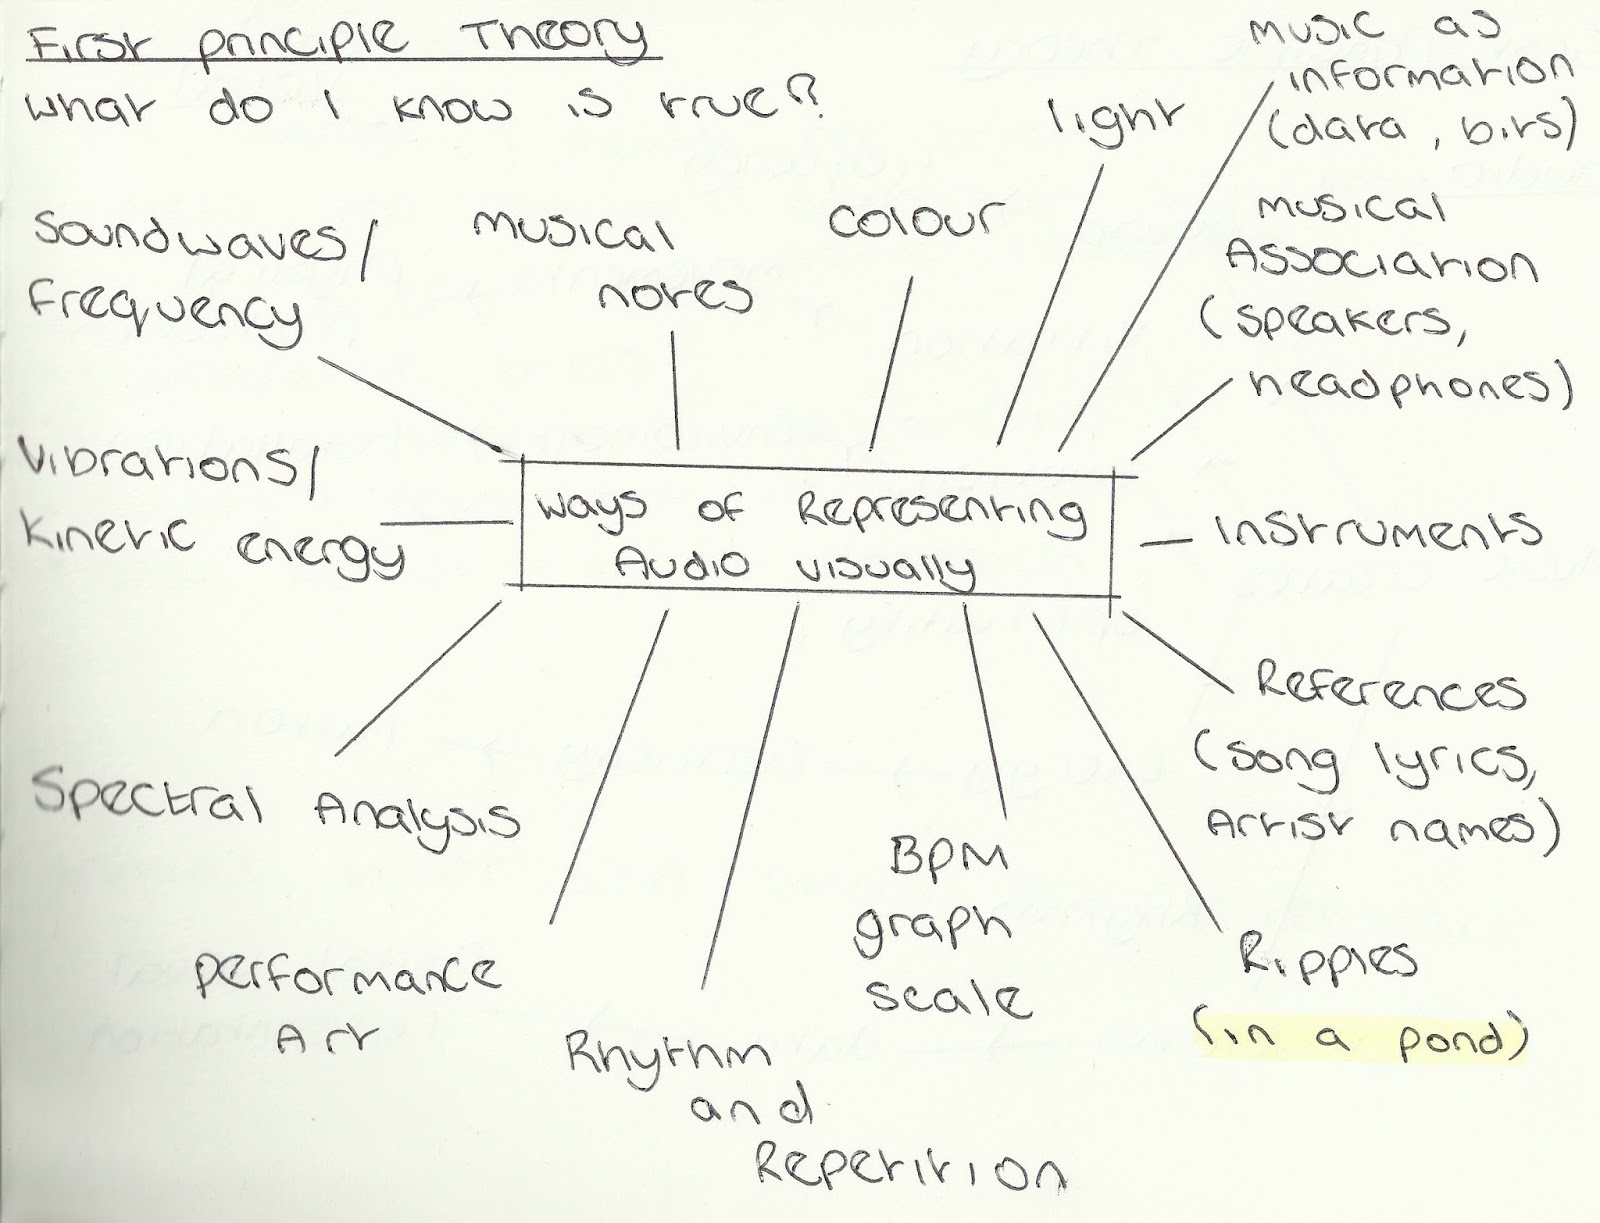 First principle Theory
what do I know is true?
light
music as
information
(data, bits)
Soundwaves/
frequency
musical
notes
colour
musical
Association
(speakers,
headphones)
Vibrations/
Kinetic energy
ways of Representing
Audio visually
Instruments
References
(song lyrics,
Artist names)
Spectral Analysis
performance
Art
Rhythm
and
Repetition
BPM
graph
scale
Ripples
(in a pond)